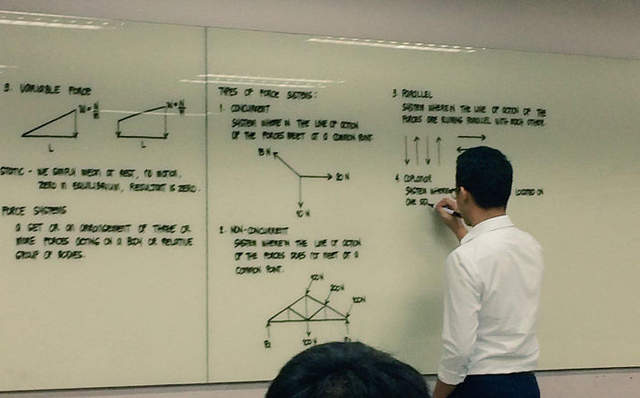 3. VARIABLE FORCE
L
L
STATIC - WE SIMPLY MEAN AT REST, NO MOTION,
ZERO IN EQUILIBRIUM, RESULTANT IS ZERO.
FORCE SYSTEMS
A SET OR AN ARRANGEMENT OF THREE OR
MORE FORCES ACTING ON A BODY OR RELATIVE
GROUP OF BODIES.
TYPES OF FORCE SYSTEMS:
1. CONCURRENT
SYSTEM WHERE IN THE LINE OF ACTION
OF THE FORCES MEET AT A COMMON POINT
20 N
10 N
2. NON-CONCURRENT
SYSTEM WHEREIN THE LINE OF ACTION
OF THE FORCES DOES NOT MEET AT A
COMMON POINT.
100N
200N
100N
3. PARALLEL
SYSTEM WHERE IN THE LINE OF ACTION OF THE
FORCES ARE RUNNING PARALLEL WITH EACH OTHER
4. COPLANAR
SYSTEM WHEREIN LOCATED ON
ONE